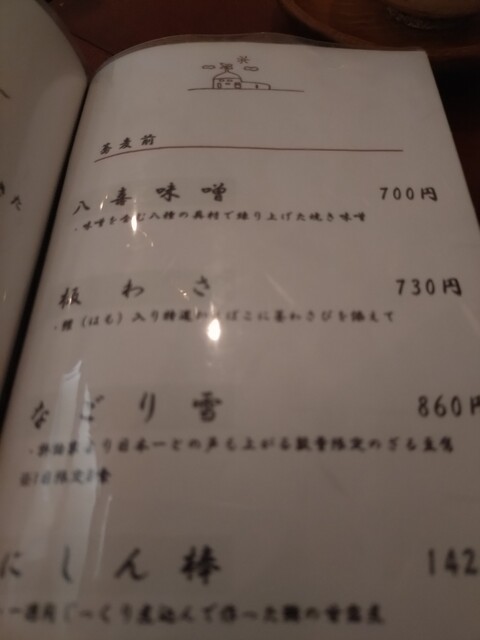 蕎麦前
八喜味噌 700円
・味噌を含む八種の具材で練り上げた焼き味噌
板わさ 730円
・鱧(はも)入り特選かまぼこに茎わさびを添えて
なごり雪 860円
・評論家より日本一との声も上がる数量限定のざる豆腐
にしん棒 142
・一週間じっくり煮込んで作った鰊の甘露煮